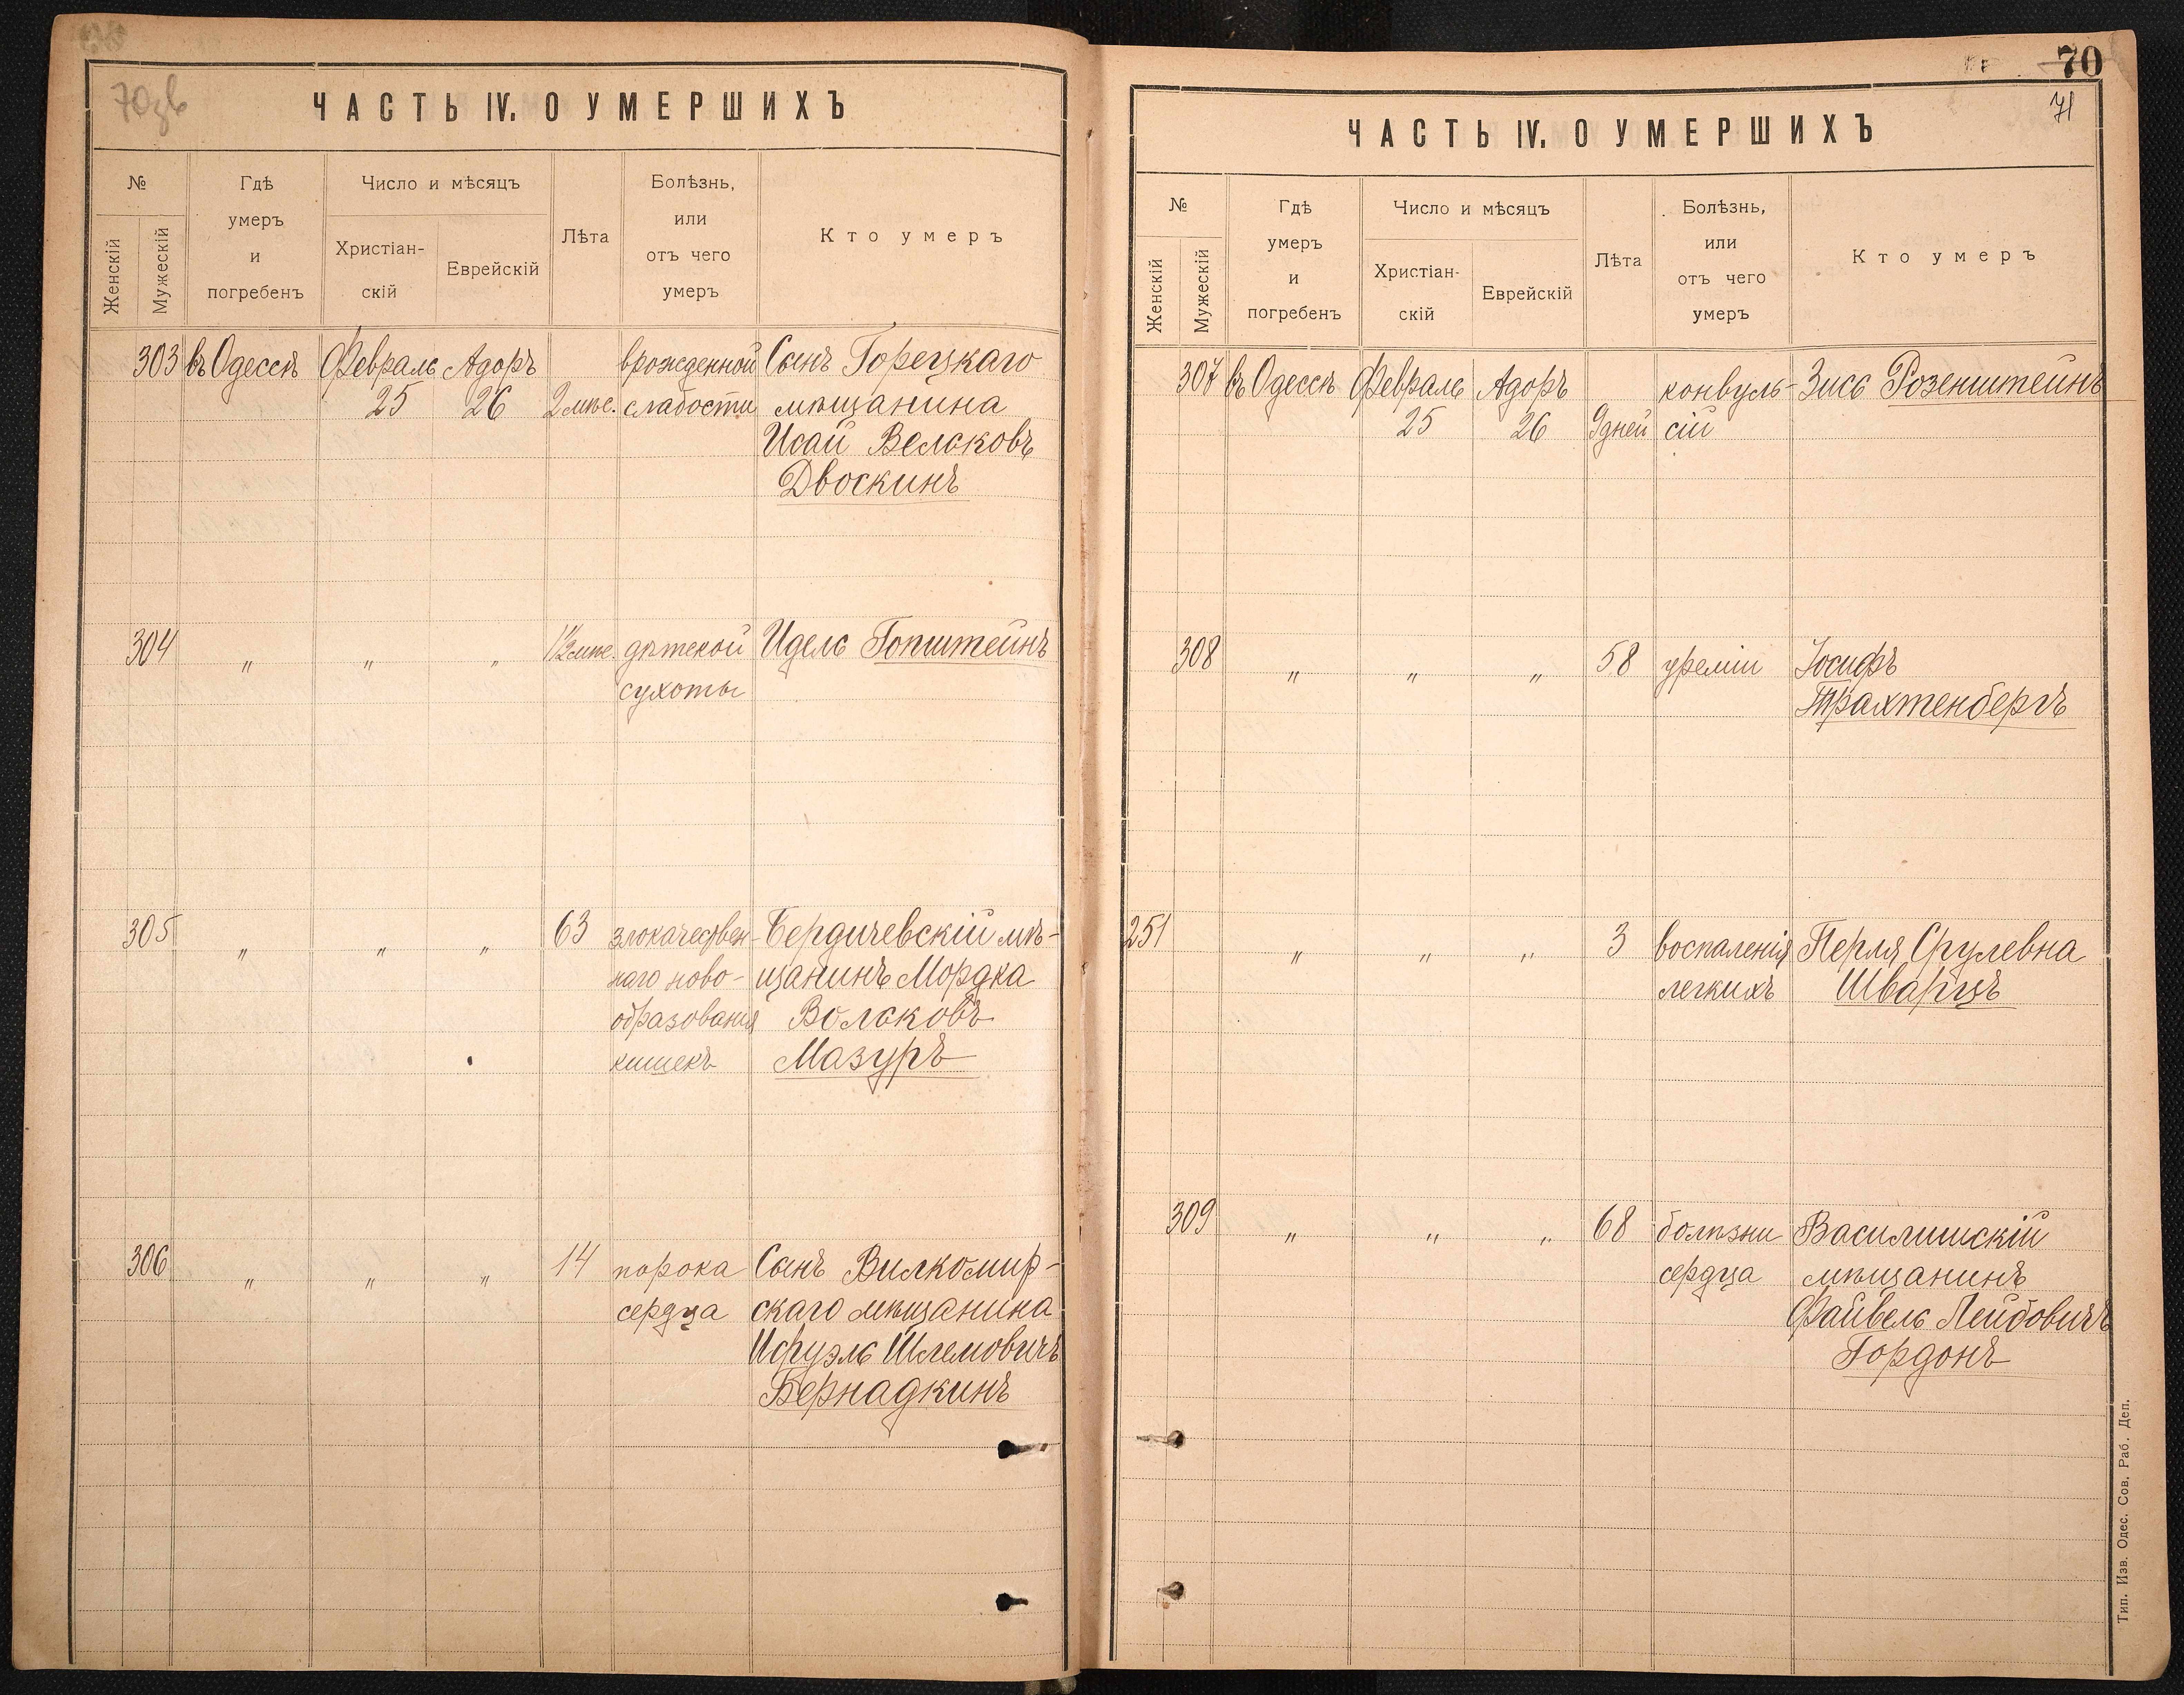 70зв
ЧАСТЬ IV. О УМЕРШИХЪ
№
Женскій
Мужескій
Гдѣ
умеръ
и
погребенъ
Число и мѣсяцъ
Христіан-
скій
Еврейскій
Лѣта
Болѣзнь,
или
отъ чего
умеръ
Кто умеръ
303 въ Одессѣ Февраль Адоръ врожденной Сынъ Горецкаго
25 26 2 мѣс. слабости мѣщанина
Исай Вельковъ
Двоскинъ
304 " " " 1½ мѣс. дѣтской Идель Гопштейнъ
сухоты
305 " " " 63 злокачествен- Бердичевскій мѣ-
наго ново- щанинъ Мордка
образованія Вольковъ
кишекъ Мазуръ
306 " " " 14 порока Сынъ Вилкомир-
сердца скаго мѣщанина
Исруэль Шлемовичъ
Бернадкинъ
70
71
ЧАСТЬ IV. О УМЕРШИХЪ
№
Женскій
Мужескій
Гдѣ
умеръ
и
погребенъ
Число и мѣсяцъ
Христіан-
скій
Еврейскій
Лѣта
Болѣзнь,
или
отъ чего
умеръ
Кто умеръ
307 въ Одессѣ Февраль Адоръ конвуль- Зись Розенштейнъ
25 26 9 дней сій
308 " " " 58 уреміи Іосифъ
Трахтенбергъ
251 " " " 3 воспаленія Перля Срулевна
легкихъ Шварцъ
309 " " " 68 болѣзни Василишскій
сердца мѣщанинъ
Файвель Лейбовичъ
Гордонъ
Тип. Изв. Одес. Сов. Раб. Деп.